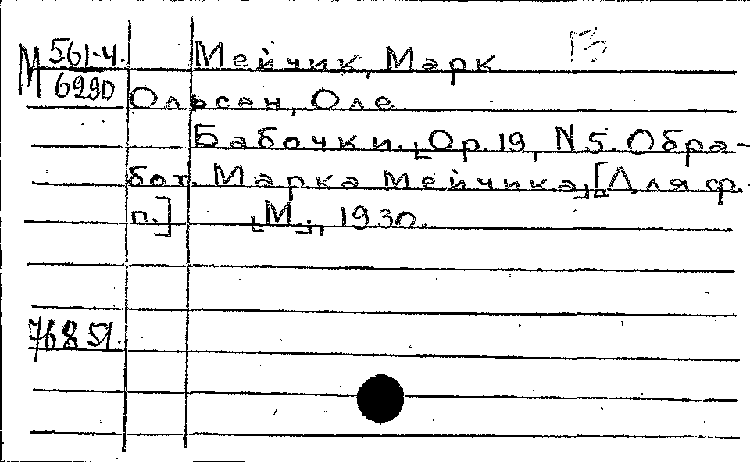 М 561-4. Мейчик, Марк
6290 Ольсен, Оле
Бабочки. Ор. 19, N 5. Обра-
бот. Марка Мейчика, [Для ф.
п.] [М.], 1930.
76851.